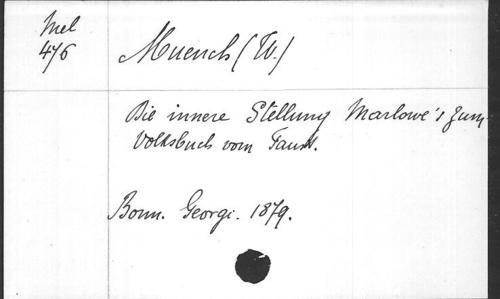 Mel
476
Muench (W.)
Die innere Stellung Marlowe's zum
Volksbuch vom Faust.
Bonn. Georgi. 1879.